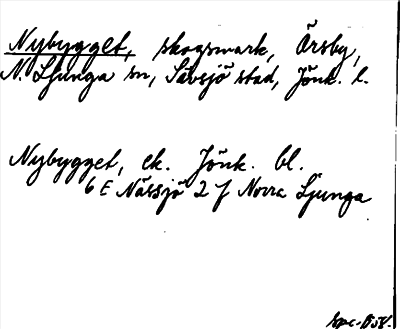 Nybygget, skogsmark, Örsby,
N. Ljunga sn, Sävsjö stad, Jönk. l.
Nybygget, ek. Jönk. bl.
6 E Nässjö 2 f Norra Ljunga